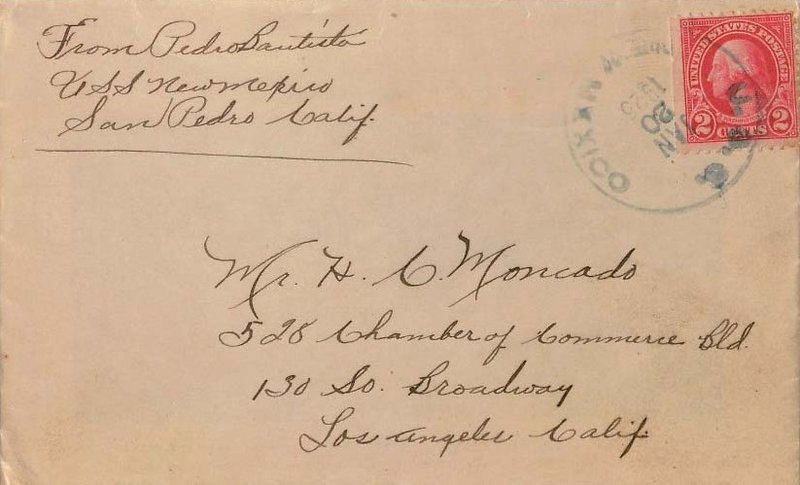 From Pedro Bautista
USS New Mexico
San Pedro Calif.
UNITED STATES POSTAGE
2 CENTS 2
MEXICO
JAN
20
Mr. H. C. Moncado
528 Chamber of Commerce Bld.
130 So. Broadway
Los Angeles Calif.